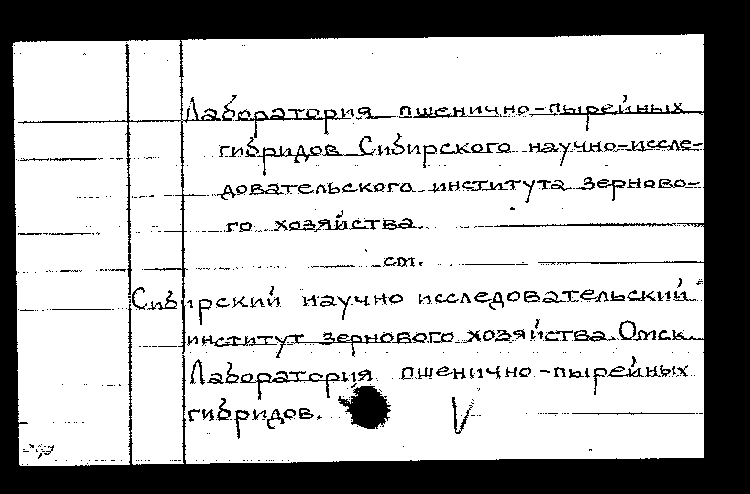 Лаборатория пшенично-пырейных
гибридов Сибирского научно-иссле-
довательского института зерново-
го хозяйства.
см.
Сибирский научно исследовательский
институт зернового хозяйства. Омск.
Лаборатория пшенично-пырейных
гибридов.